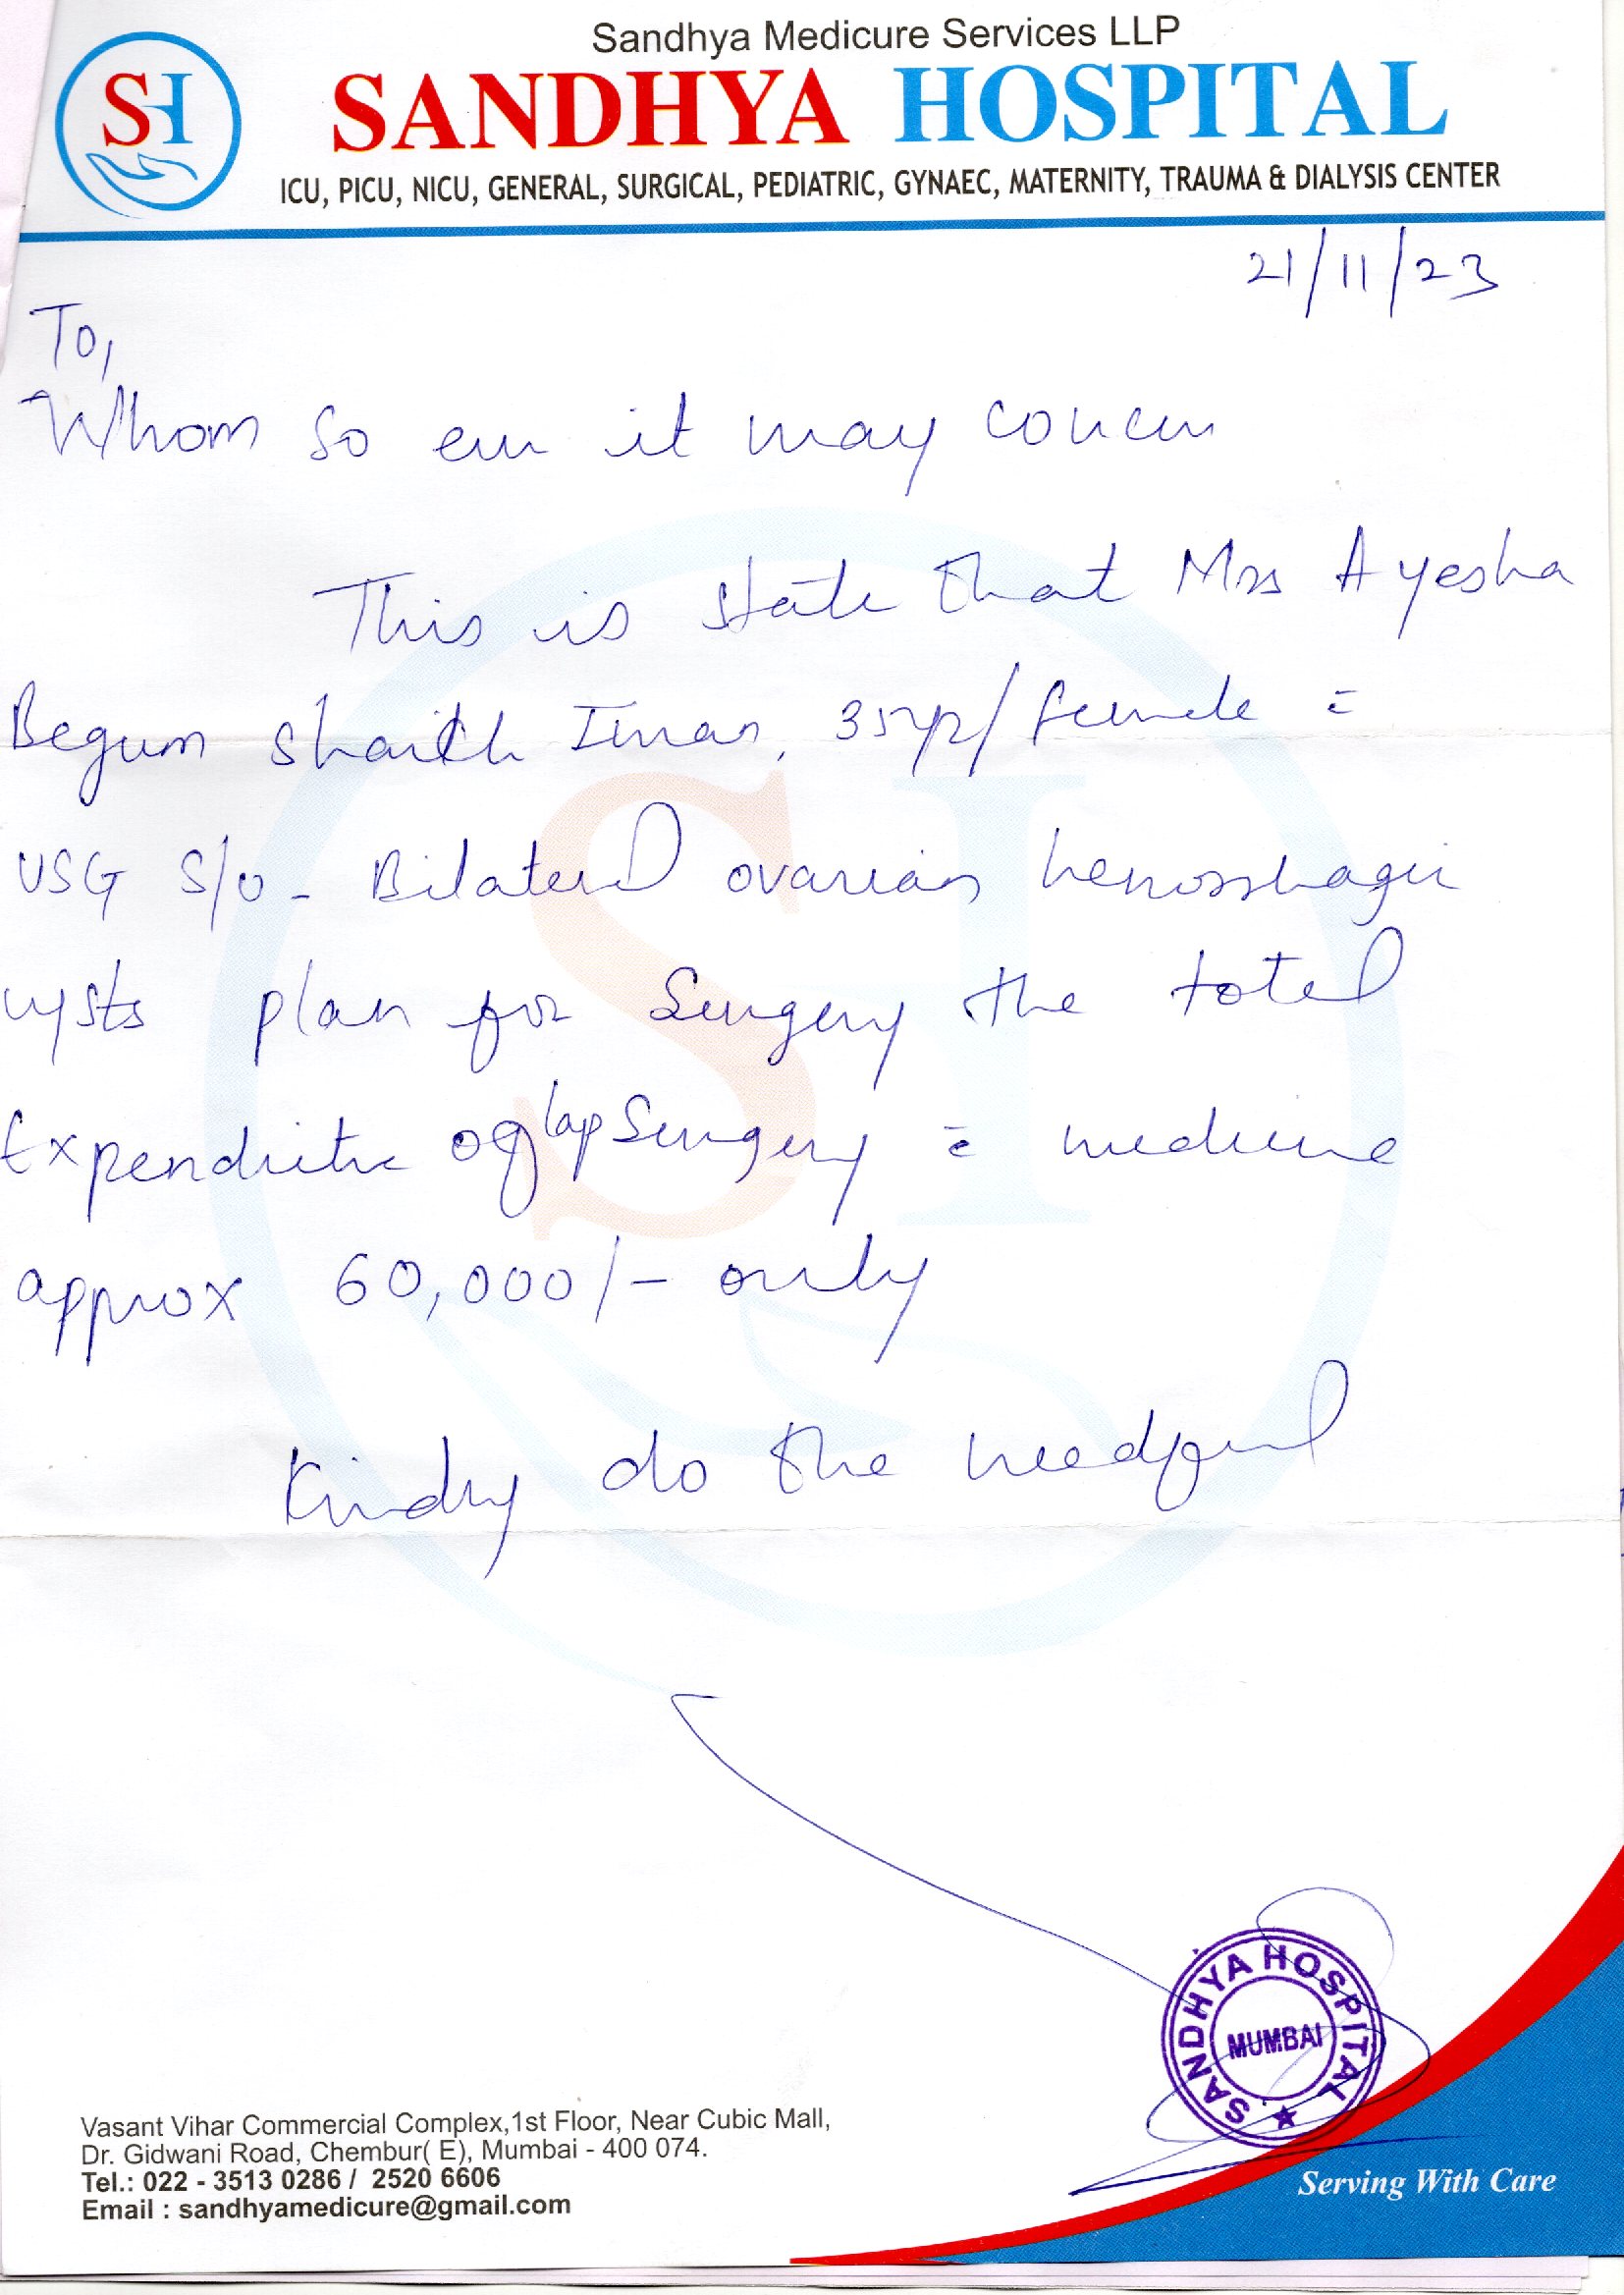 Sandhya Medicure Services LLP
SH
SANDHYA HOSPITAL
ICU, PICU, NICU, GENERAL, SURGICAL, PEDIATRIC, GYNAEC, MATERNITY, TRAUMA & DIALYSIS CENTER
21/11/23
To,
Whom so ever it may concern
This is state that Mrs Ayesha
Begum Shaikh Imran, 35yr/female c̄
USG S/o - Bilateral ovarian hemorrhagic
cysts plan for surgery the total
Expenditure of lap Surgery c̄ medicine
approx 60,000/- only
Kindly do the needful
SANDHYA HOSPITAL
MUMBAI
Vasant Vihar Commercial Complex,1st Floor, Near Cubic Mall,
Dr. Gidwani Road, Chembur( E), Mumbai - 400 074.
Tel.: 022 - 3513 0286 / 2520 6606
Email : sandhyamedicure@gmail.com
Serving With Care